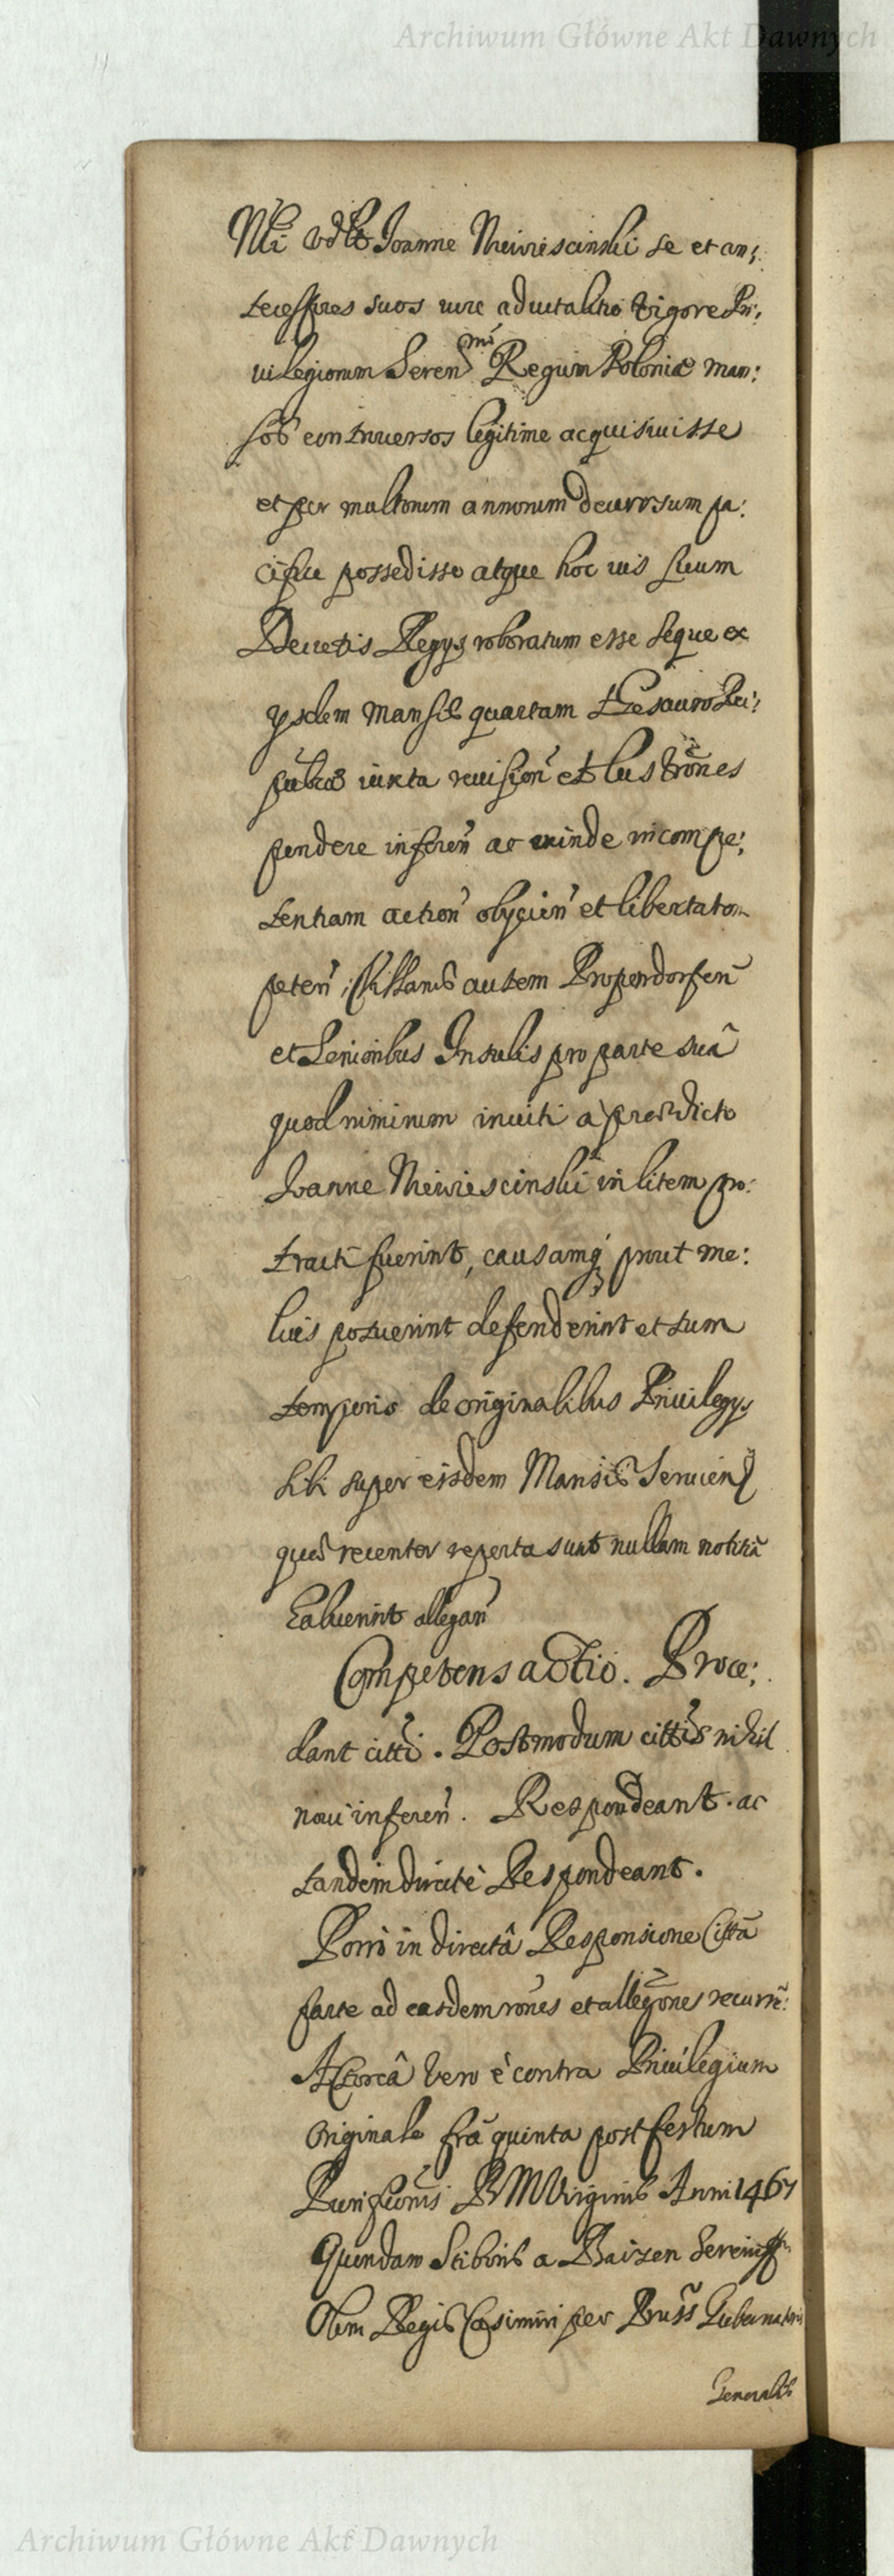 Archiwum Główne Akt Dawnych
Joanne Niewiescinski se et an:
tecessores suos iure aduitalitio vigore Pri:
uilegiorum Seren mi Regum Poloniæ man:
sos controuersos legitime acquisiuisse
et per multorum annorum decursum pa:
cifice possedisse atque hoc ius suum
Decretis Regys roboratum esse seque ex
ysdem mansis quartam thesauro Rei:
publicæ iuxta reuision et lustrones
pendere inferen ac exinde incompe:
tentiam action obycien et libertatem
peten; Villanis autem Propendorfen
et Senioribus Insulis pro parte suâ
quod nimirum inuiti a prædicto
Joanne Niewiescinski in litem pro:
tracti fuerint, causamq prout me:
lius potuerint defenderint et tum
temporis de originalibus Priuilegys
sibi super eisdem Mansis Seruien
quæ recenter reperta sunt nullam notitiã
habuerint allegan
Competens actio. Proce:
dant citti. Postmodum cittis nihil
noui inferen. Respondeant. ac
tandem directè Respondeant.
Porrò in directâ Responsione Cittã
parte ad easdem rones et allegones recurre:
Actoreâ vero è contra Priuilegium
Originale frã quinta post festum
Purifionis B M Virginis Anni 1467
Quendam Stiboris a Baizen Sereniss
Olim Regis Casimiri per Pruss Gubernatoris
Generalis
Archiwum Główne Akt Dawnych